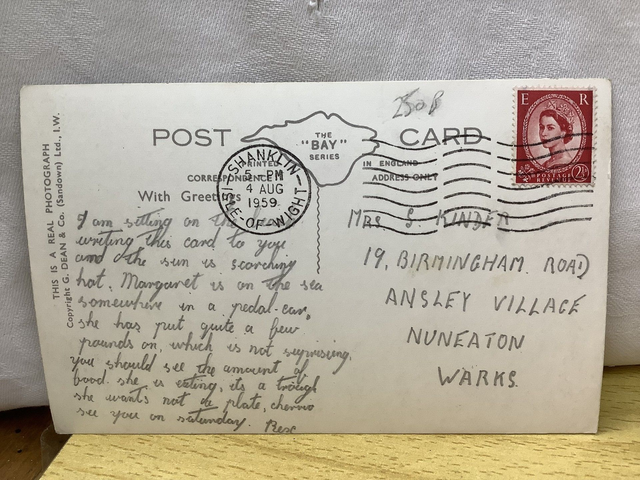 250 P
POST CARD
THE
"BAY"
SERIES
PRINTED IN ENGLAND
CORRESPONDENCE ADDRESS ONLY
With Greetings
SHANKLIN
5 - PM
4 AUG
1959
ISLE-OF-WIGHT
E R
POSTAGE REVENUE
2½D
THIS IS A REAL PHOTOGRAPH
Copyright G. DEAN & Co. (Sandown) Ltd., I.W.
I am sitting on the
writing this card to you
and the sun is scorching
hot. Margaret is on the sea
somewhere in a pedal-car,
she has put quite a few
pounds on, which is not suprising,
you should see the amount of
food she is eating, its a trough
she wants not a plate, cheerio
see you on saturday.
MRS S. KINDER
19, BIRMINGHAM ROAD
ANSLEY VILLAGE
NUNEATON
WARKS.